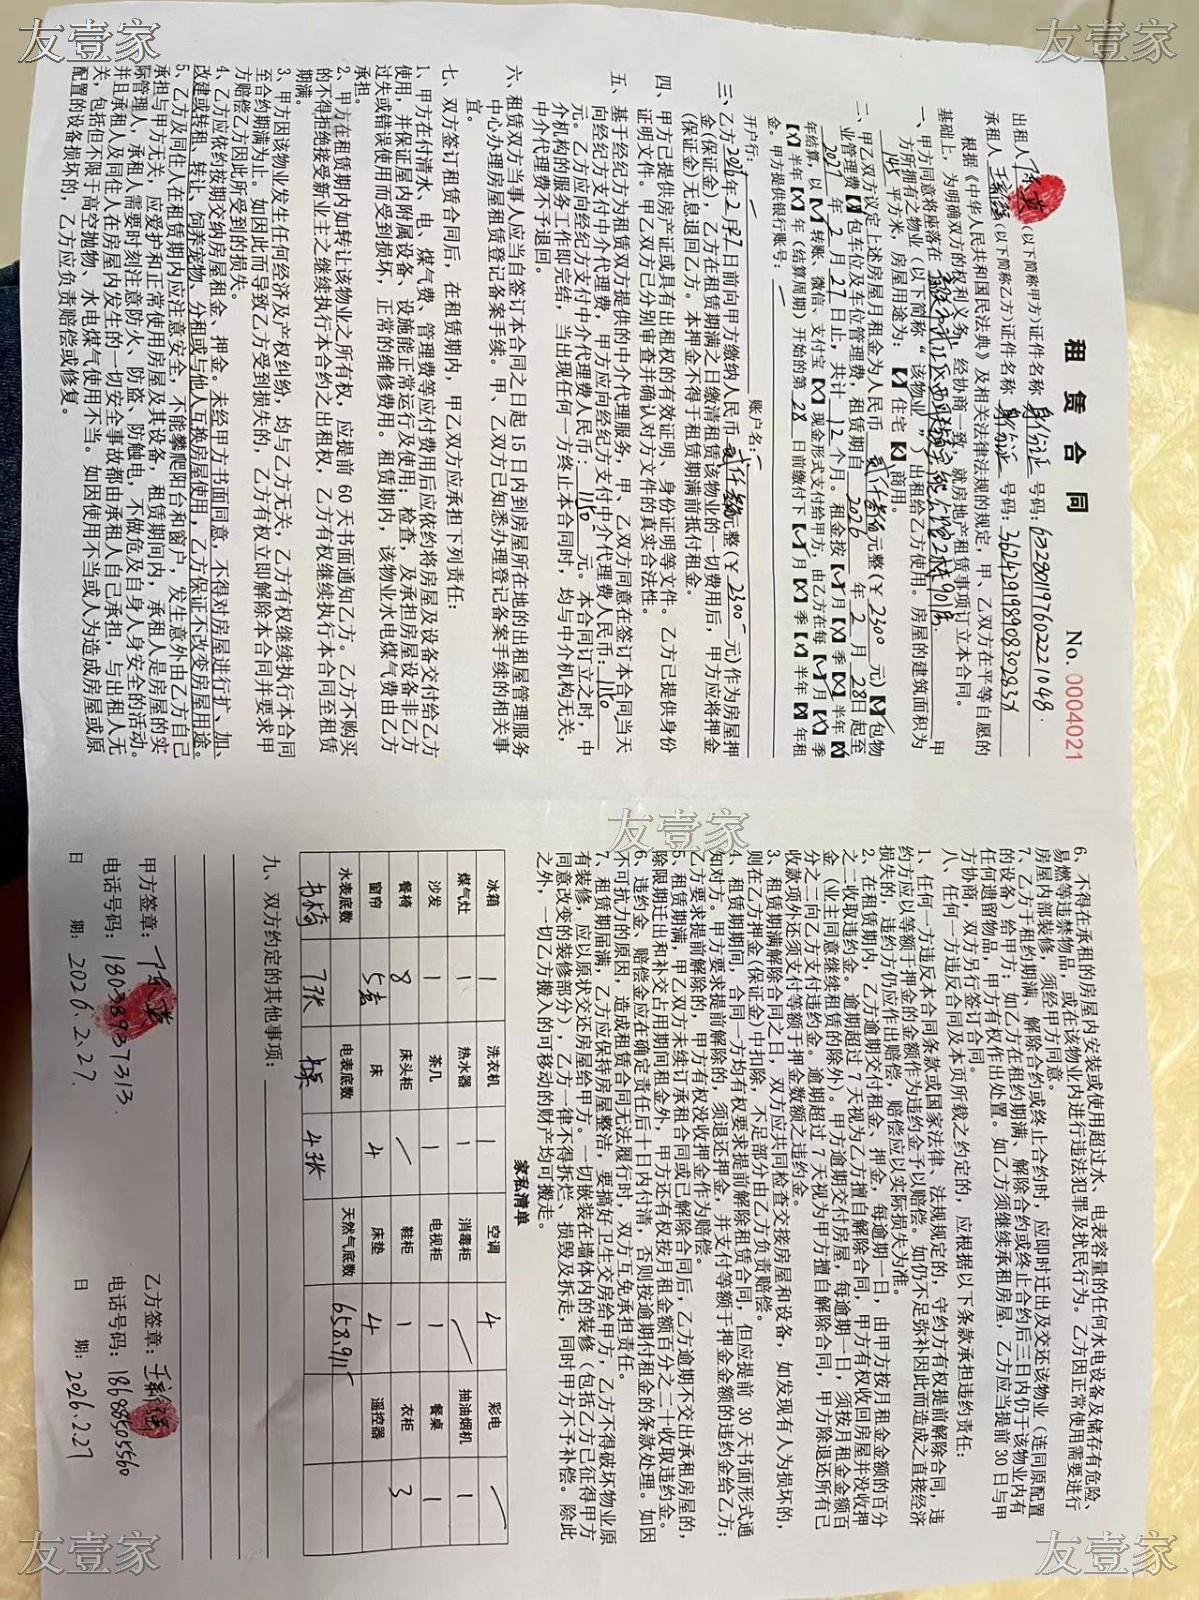 友壹家
友壹家
租赁合同 No. 0004021
出租人 (以下简称甲方)证件名称 身份证 号码: 622801197602221048.
承租人 (以下简称乙方)证件名称 身份证 号码:
根据《中华人民共和国民法典》及相关法律法规的规定，甲、乙双方在平等自愿的
基础上，为明确双方的权利义务，经协商一致，就房地产租赁事项订立本合同。
一、甲方同意将座落在 甲
方所拥有之物业（以下简称“该物业”）出租给乙方使用。房屋的建筑面积为
145 平方米，房屋用途为：【✓】住宅【✗】商用。
二、甲乙双方议定上述房屋月租金为人民币 贰仟叁佰 元整(￥2300 元)【✓】包物
业管理费【✗】包车位及车位管理费，租赁期自 2026 年 2 月 28日起至
2027 年 2 月 27 日止，共计 12 个月。租金按【✓】月【✗】季【✗】半年【✗】
年结算，以【✓】转账、微信、支付宝【✗】现金形式支付给甲方，由乙方在每【✓】月【✗】季
【✗】半年【✗】年（结算周期）开始的第 28 日前缴付下【✓】月【✗】季【✗】半年【✗】年租
金。甲方提供银行账号：
开户行： 账户名：
三、乙方2026年2月27日前向甲方缴纳人民币 贰仟叁佰元整(￥2300 元)作为房屋押
金(保证金)，乙方在租赁期满之日缴清租赁该物业的一切费用后，甲方应将押金
(保证金)无息退回乙方。本押金不得于租赁期满前抵付租金。
四、甲方已提供房产证或具有出租权的有效证明、身份证明等文件。乙方已提供身份
证明文件。甲乙双方已分别审查并确认对方文件的真实合法性。
五、基于经纪方为租赁双方提供的中介代理服务，甲、乙双方同意在签订本合同当天
向经纪方支付中介代理费，甲方应向经纪方支付中介代理费人民币：1150
元。乙方应向经纪方支付中介代理费人民币：1150 元。本合同订立之时，中
介机构的服务工作即完结，当出现任何一方终止本合同时，均与中介机构无关，
中介代理费不予退回。
六、租赁双方当事人应当自签订本合同之日起 15 日内到房屋所在地的出租屋管理服务
中心办理房屋租赁登记备案手续。甲、乙双方已知悉办理登记备案手续的相关事
宜。
七、双方签订租赁合同后，在租赁期内，甲乙双方应承担下列责任：
1、甲方在付清水、电、煤气费、管理费等应付费用后应依约将房屋及设备交付给乙方
使用，并保证屋内附属设备、设施能正常运行及使用；检查，及承担房屋设备非乙方
过失或错误使用而受到损坏，正常的维修费用。租赁期内，该物业水电煤气费由乙方
承担。
2、甲方在租赁期内如转让该物业之所有权，应提前 60 天书面通知乙方。乙方不购买
的不得拒绝接受新业主之继续执行本合约之出租权，乙方有权继续执行本合同至租赁
期满。
3、甲方因该物业发生任何经济及产权纠纷，均与乙方无关，乙方有权继续执行本合同
至合约期满为止。如因此而导致乙方受到损失的，乙方有权立即解除本合同并要求甲
方赔偿乙方因此所受到的损失。
4、乙方应依约按期交纳房屋租金、押金。未经甲方书面同意，不得对房屋进行扩、加、
改建或转租、转让、饲养宠物、分租或与他人互换房屋使用，乙方保证不改变房屋用途。
5、乙方及同住人在租赁期内应注意安全，不能攀爬阳台和窗户，发生意外由乙方自己
承担与甲方无关，应爱护和正常使用房屋及其设备，租赁期间内，承租人是房屋的实
际管理人，承租人需要时刻注意防火、防盗、防触电，不做危及自身人身安全的活动。
并且承租人及同住人在房屋内发生的一切安全事故都由承租人自己承担，与出租人无
关，包括但不限于高空抛物、水电煤气使用不当。如因使用不当或人为造成房屋或原
配置的设备损坏的，乙方应负责赔偿或修复。
友壹家
6、不得在承租的房屋内安装或使用超过水、电表容量的任何水电设备及储存有危险、
易燃等违禁物品，或在该物业内进行违法犯罪及扰民行为。乙方因正常使用需要进行
房屋内部装修，须经甲方同意。
7、乙方于租约期满、解除合约或终止合约时，应即时迁出及交还该物业（连同原配置
的设备）给甲方；如乙方在租约期满、解除合约或终止合约后三日内仍于该物业内有
任何遗留物品，甲方有权作出处置。如乙方须继续承租房屋，乙方应当提前 30 日与甲
方协商，双方另行签订合同。
八、任何一方违反合同及本页所载之约定的，应根据以下条款承担违约责任：
1、任何一方违反本合同条款或国家法律、法规规定的，守约方有权提前解除合同，违
约方应以等额于押金的金额作为违约金予以赔偿。如仍不足弥补因此而造成之直接经济
损失的，违约方仍应作出赔偿，赔偿应以实际损失为准。
2、在租赁期内，乙方逾期交付租金、押金，每逾期一日，由甲方按月租金金额的百分
之二收取违约金。逾期超过 7 天视为乙方擅自解除合同，甲方有权收回房屋并没收押
金（业主同意继续租赁的除外）。甲方逾期交付房屋，每逾期一日，须按月租金金额百
分之二向乙方支付违约金。逾期超过 7 天视为甲方擅自解除合同，甲方除退还所有已
收款项外还须支付等额于押金数额之违约金。
3、租赁期满解除合同之日，双方应共同检查交接房屋和设备，如发现有人为损坏的，
则在乙方押金(保证金)中扣除，不足部分由乙方负责赔偿。
4、租赁期期间，合同一方均有权要求提前解除租赁合同，但应提前 30 天书面形式通
知对方。甲方要求提前解除的，须退还押金，并支付等额于押金金额的违约金给乙方；
乙方要求提前解除的，甲方有权没收押金作为赔偿。
5、租赁期满，甲乙双方未续订承租合同或已解除合同后，乙方逾期不交出承租房屋的，
除限期迁出和补交占用期间租金外，甲方还有权按月租金额百分之二十收取违约金。
6、违约金、赔偿金应在确定责任后十日内付清，否则按逾期付租金的条款处理。如因
不可抗力的原因，造成租赁合同无法履行时，双方互免承担责任。
7、租赁期届满，乙方应保持房屋整洁，要搞好卫生交房给甲方，乙方不得破坏物业原
有装修，应以原状交还房屋给甲方。一切嵌装在墙体内的装修（包括乙方已征得甲方
同意改变的装修部分），乙方一律不得拆烂、损毁及拆走，同时甲方不予补偿。除此
之外，一切乙方搬入的可移动的财产均可搬走。
家私清单
冰箱 1 洗衣机 1 空调 4 彩电 一
煤气灶 1 热水器 1 消毒柜 一 抽油烟机 1
沙发 1 茶几 1 电视柜 1 餐桌 1
餐椅 8 床头柜 一 鞋柜 1 衣柜 3
窗帘 5套 床 4 床垫 4 遥控器
水表底数 电表底数 天然气底数 658.911
书椅 7张 书桌 4张
九、双方约定的其他事项：
甲方签章： 乙方签章：
电话号码：18038937313. 电话号码：18688505560
日 期：2026.2.27. 日 期：2026.2.27
友壹家
友壹家